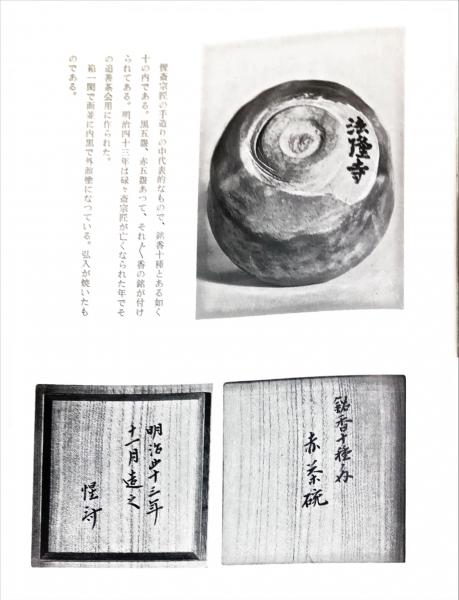 惺斎宗匠の手造りの中代表的なもので、銘香十種とある如く
十の内である。黒五盌、赤五盌あつて、それ〴〵香の銘が付け
られてある。明治四十三年は碌々斎宗匠が亡くなられた年でそ
の追善茶会用に作られた。
箱一閑で面並に内黒で外溜塗になつている。弘入が焼いたも
のである。
法隆寺
銘香十種ノ内
赤茶碗
明治四十三年
十一月造之
惺斎